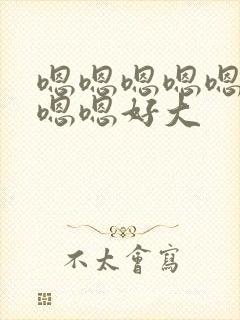 嗯嗯嗯嗯嗯
嗯嗯好大
不太會寫